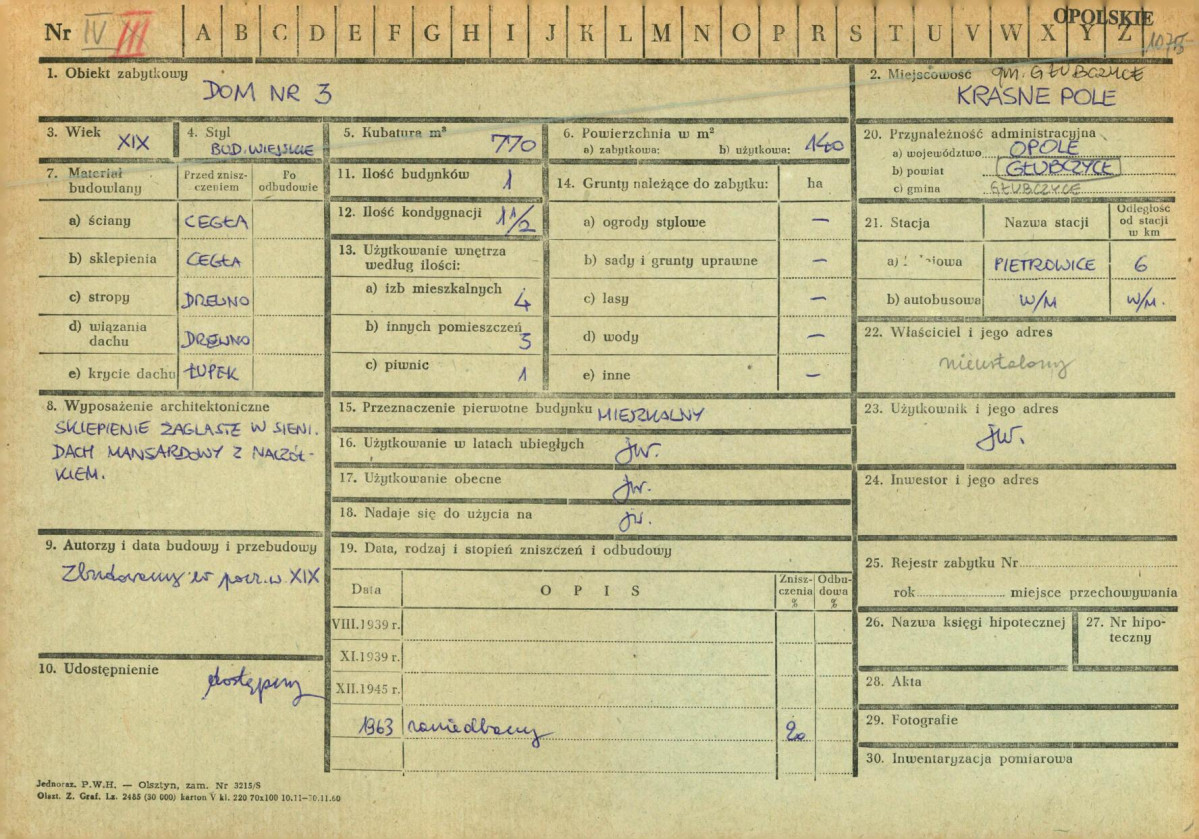 Nr IV III A B C D E F G H I J K L M N O P R S T U V W X Y Z OPOLSKIE
1. Obiekt zabytkowy
DOM NR 3
2. Miejscowość gm. GŁUBCZYCE
KRASNE POLE
3. Wiek
XIX
4. Styl
BUD. WIEJSKIE
5. Kubatura m³
770
6. Powierzchnia w m²
a) zabytkowa: b) użytkowa: 140
7. Materiał budowlany
Przed zniszczeniem
Po odbudowie
a) ściany CEGŁA
b) sklepienia CEGŁA
c) stropy DREWNO
d) wiązania dachu DREWNO
e) krycie dachu ŁUPEK
8. Wyposażenie architektoniczne
SKLEPIENIE ŻAGLASTE W SIENI.
DACH MANSARDOWY Z NACZÓŁ-
KIEM.
9. Autorzy i data budowy i przebudowy
Zbudowany w pocz. w. XIX
10. Udostępnienie
dostępny
11. Ilość budynków 1
12. Ilość kondygnacji 1 1/2
13. Użytkowanie wnętrza
według ilości:
a) izb mieszkalnych 4
b) innych pomieszczeń 3
c) piwnic 1
14. Grunty należące do zabytku: ha
a) ogrody stylowe –
b) sady i grunty uprawne –
c) lasy –
d) wody –
e) inne –
15. Przeznaczenie pierwotne budynku MIESZKALNY
16. Użytkowanie w latach ubiegłych jw.
17. Użytkowanie obecne jw.
18. Nadaje się do użycia na jw.
19. Data, rodzaj i stopień zniszczeń i odbudowy
Data OPIS Znisz-czenia % Odbu-dowa %
VIII.1939 r.
XI.1939 r.
XII.1945 r.
1963 zaniedbany 20
20. Przynależność administracyjna
a) województwo OPOLE
b) powiat GŁUBCZYCE
c) gmina GŁUBCZYCE
21. Stacja Nazwa stacji Odległość od stacji w km
a) PIETROWICE 6
b) autobusowa W/M W/M.
22. Właściciel i jego adres
nieustalony
23. Użytkownik i jego adres
jw.
24. Inwestor i jego adres
25. Rejestr zabytku Nr
rok miejsce przechowywania
26. Nazwa księgi hipotecznej
27. Nr hipo-
teczny
28. Akta
29. Fotografie
30. Inwentaryzacja pomiarowa
Jednoraz. P.W.H. — Olsztyn, zam. Nr 3215/S
Olszt. Z. Graf. Lz. 2485 (30 000) karton V kl. 220 70x100